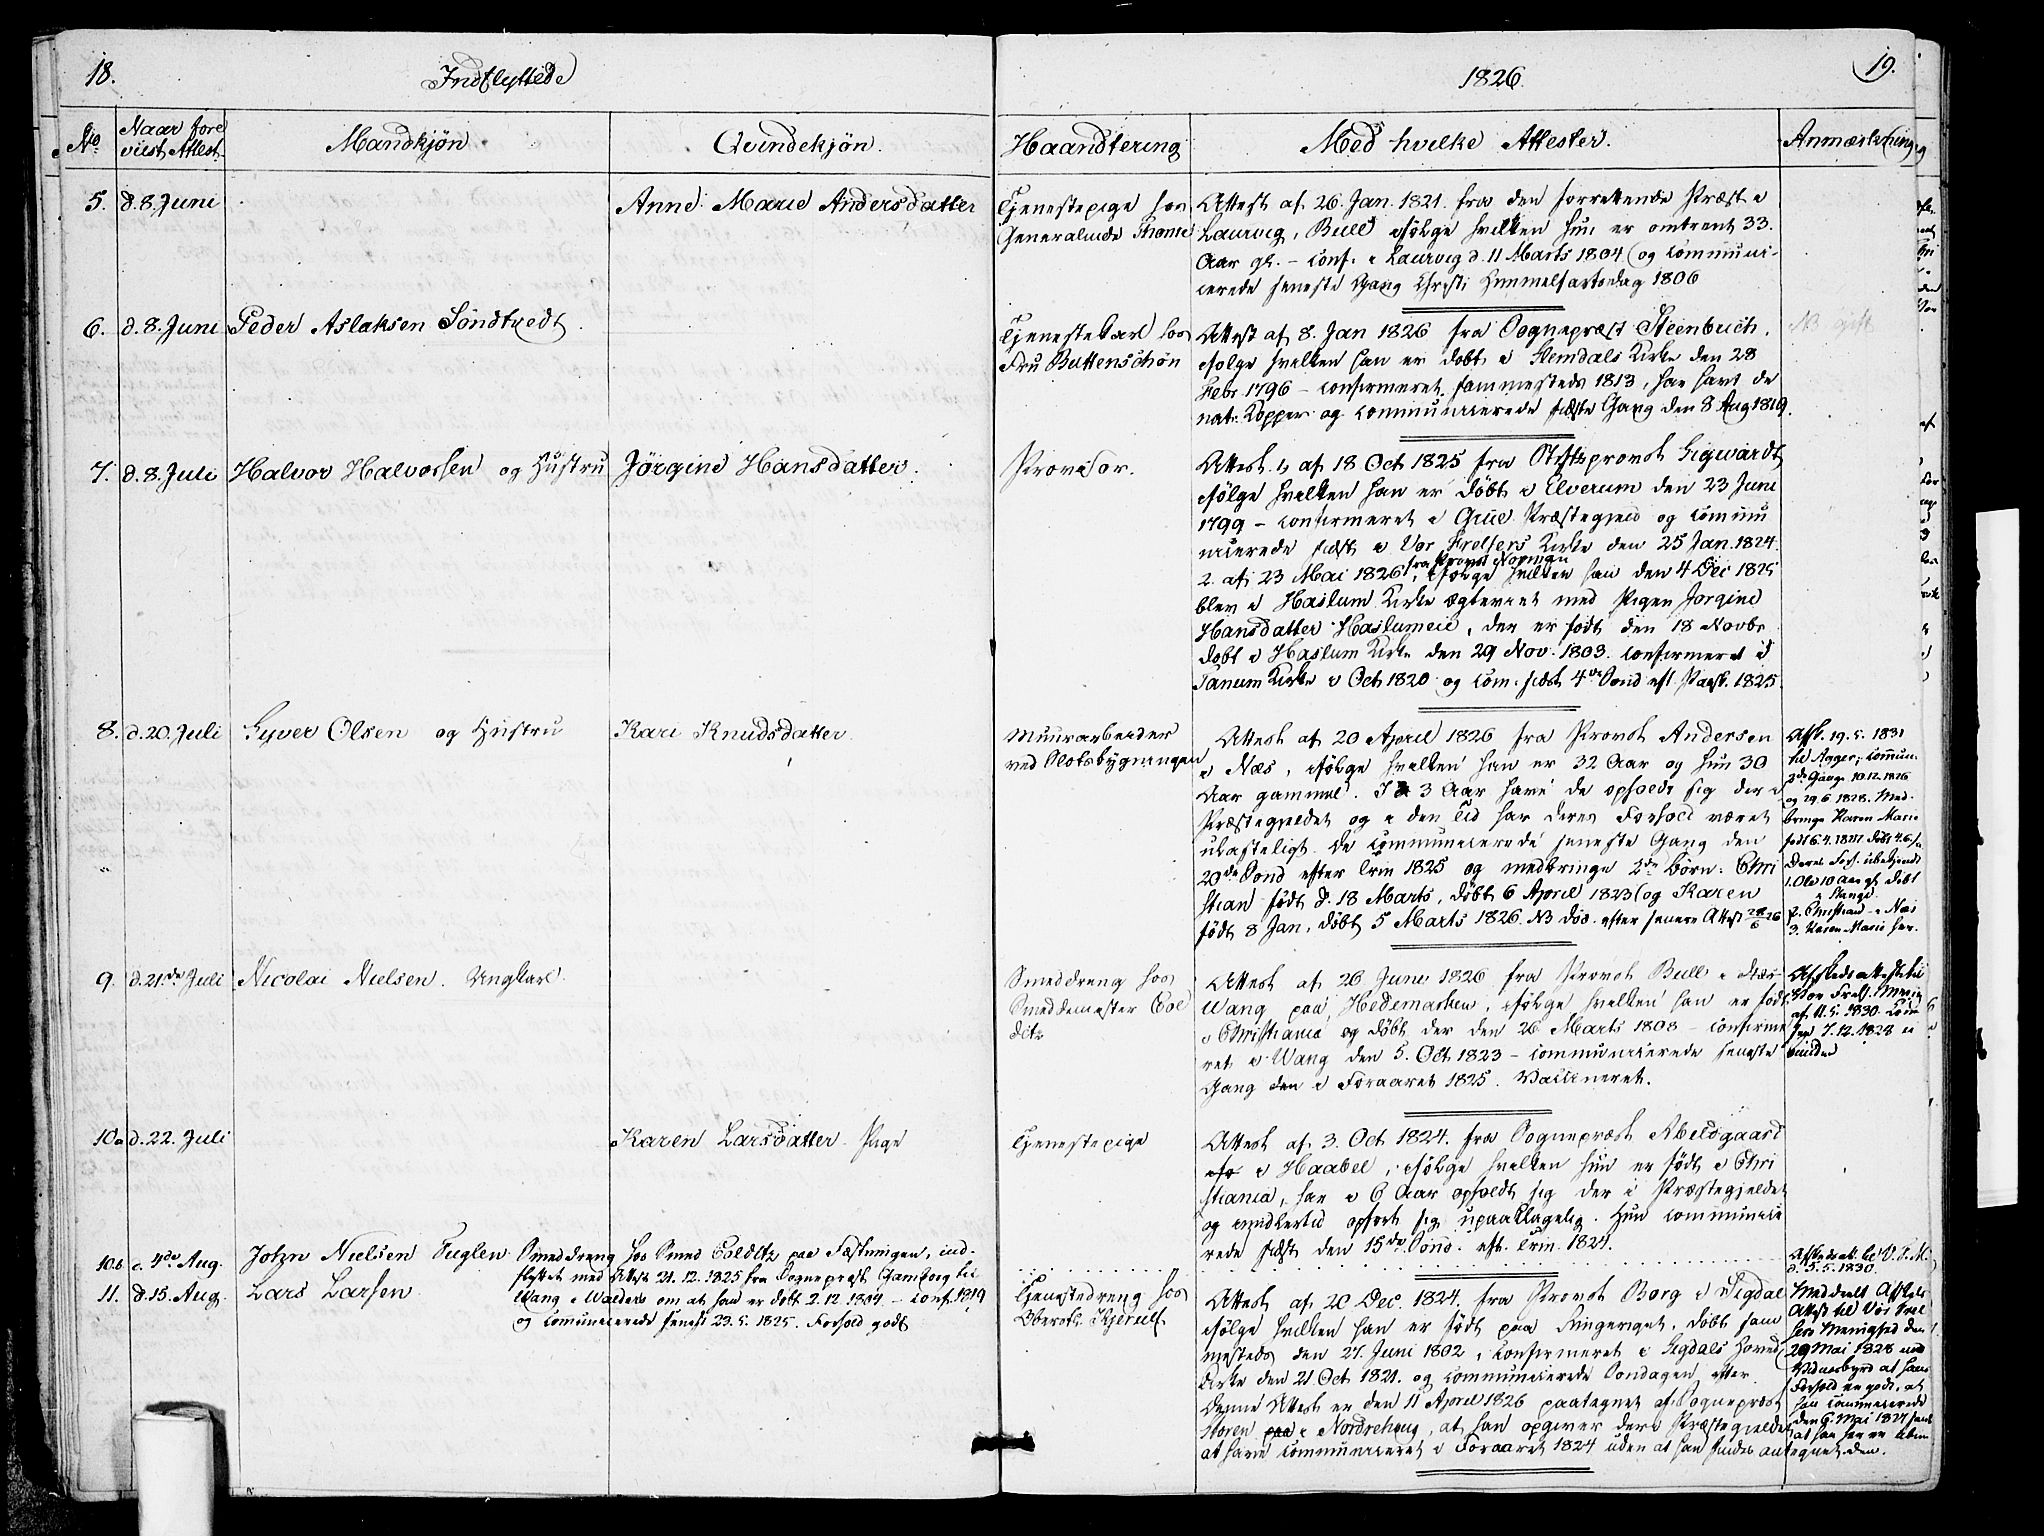 18.
Indflyttede
1826.
19.
No
Naar fore
viist Attest.
Mandkjön
Qvindekjön.
Haandtering
Med hvilke Attester.
Anmærkning
5.
d. 8. Juni
Anne Marie Andersdatter
Tjenestepige hos
Generalinde
Attest af 26. Jan. 1821. fra den forrettende Præst i
Laurvig, Bull ifölge hvilken hun er omtrent 33.
Aar gl. - conf. i Laurvig d. 11 Marts 1804 og communi-
cerede seneste Gang Christi Himmelfartsdag 1806
6.
d. 8. Juni
Peder Aslaksen Söndtvedt
Tjenestekarl hos
Fru Buttenschön
Attest af 8. Jan 1826 fra Sognepræst Steenbuch,
ifölge hvilken han er döbt i Slemdals Kirke den 28
Febr 1796 - confirmeret sammesteds 1813, har havt de
nat. Kopper og communicerede sidste Gang den 8 Aug 1819.
NB gift
7.
d. 8. Juli
Halvor Halvorsen og Hustru
Jörgine Hansdatter.
Provisor.
Attest 1, af 18 Oct 1825 fra Stiftsprovst Sigwardt
ifölge hvilken han er döbt i Elverum den 23 Juni
1799 - confirmeret i Grue Præstegjeld og commu
nicerede sidst i Vor Frelsers Kirke den 25 Jan. 1824.
2. af 23 Mai 1826 fra Provst Normann, ifölge hvilken han den 4 Dec 1825
blev i Haslum Kirke ægteviet med Pigen Jörgine
Hansdatter Haslumeie, der er födt den 18 Novbr
döbt i Haslum Kirke den 29 Nov. 1803. confirmeret i
Tanum Kirke i Oct 1820 og com. sidst 4de Sönd eft. Paask. 1825.
8.
d. 20. Juli
Syver Olsen og Hustru
Kari Knudsdatter.
Muurarbeider
ved Slotsbygningen
Attest af 20 April 1826 fra Provst Andersen
i Næs, ifölge hvilken han er 32 Aar og hun 30
Aar gammel. I 3 Aar have de opholdt sig der i
Præstegjeldet og i den Tid har deres Forhold været
ulasteligt. De communicerede seneste Gang den
20de Sönd efter Trin 1825 og medbringe 2de Börn: Chri
stian födt d. 18 Marts, döbt 6 April 1823 og Karen
födt 8 Jan, döbt 5 Marts 1826. NB död efter senere Attest
Afsk. 19. 5. 1831
til Agger; commun.
2de Gange 10.12.1826
og 29.6 1828. Med-
bringe Karen Marie
födt 6.4.1827
Deres Forh. ubekjendt
1. Ole 10 Aar gl. döbt
i Stange
2. Christian - i Næs
3. Karen Marie her.
9.
d. 21de Juli
Nicolai Nielsen. Ungkarl.
Smeddreng hos
Smeddemester Col
ditz
Attest af 26 Juni 1826 fra Provst Bull i
Wang paa Hedemarken, ifölge hvilken han er födt
i Christiania og döbt der den 26 Marts 1808 - confirme
ret i Wang den 5. Oct. 1823 - communicerede seneste
Gang den i Foraaret 1825. Vaccineret.
Afskedsattest til
Vor Frels. Menig
af 11. 5. 1830. Com
7.12.1828
10a
d. 22. Juli
Karen Larsdatter. Pige
Tjenestepige
Attest af 3. Oct 1824. fra Sognepræst Abildgaard
i Haabel, ifölge hvilken hun er födt i Chri
stiania, har i 6 Aar opholdt sig der i Præstegjeldet
og imidlertid opfört sig upaaklagelig. Hun communice
rede sidst den 15de Sönd. eft. Trin. 1824.
10b
d. 4de Aug.
John Nielsen Fuglen
Smeddreng hos Smed Colditz paa Fæstningen, ind-
flyttet med Attest 21.12.1825 fra Sognepræst Gamborg til
Wang i Walders om at han er döbt 2.12.1804. - Conf. 1819
og communicerede senest 23. 5. 1825. Forhold godt
Afskedsatt. til V. F. M.
d. 5. 5. 1830.
11.
d. 15. Aug.
Lars Larsen
Tjenestedreng hos
Oberstl. Kjerulf
Attest af 20 Dec. 1824. fra Provst Borg i Sigdal
ifölge hvilken han er födt paa Ringeriget, döbt sam
mesteds den 27. Juni 1802, confirmeret i Sigdals Hoved
Kirke den 21 Oct. 1821. og communicerede Söndagen efter.
Denne Attest er den 11 April 1826 paategnet af Sognepræst
Storen paa i Nordrehoug, at han opgiver deri Præstegjeldet
at have communiceret i Foraaret 1824 uden at han findes an
tegnet den.
Meddeelt Afskeds
Attest til Vor Frel
sers Menighed den
29 Mai 1828 med
Vidnesbyrd at hans
Forhold er godt, at
han communicerede
den 6. Mai 1827